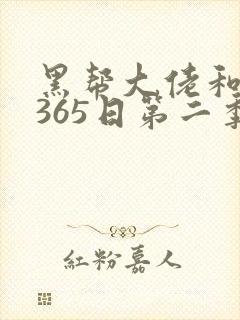 黑帮大佬和
365日第二季
紅粉嘉人